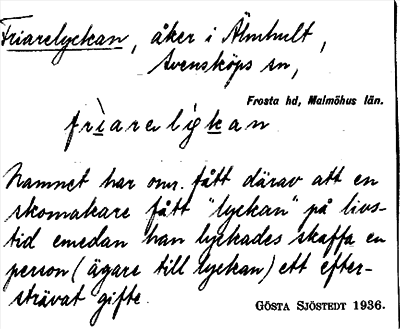 Friarelyckan, åker i Älmhult,
Svensköps sn,
Frosta hd, Malmöhus län.
frìarelýkan
Namnet har om. fått därav att en
skomakare fått "lyckan" på livs-
tid emedan han lyckades skaffa en
person (ägare till lyckan) ett efter-
strävat gifte.
GÖSTA SJÖSTEDT 1936.